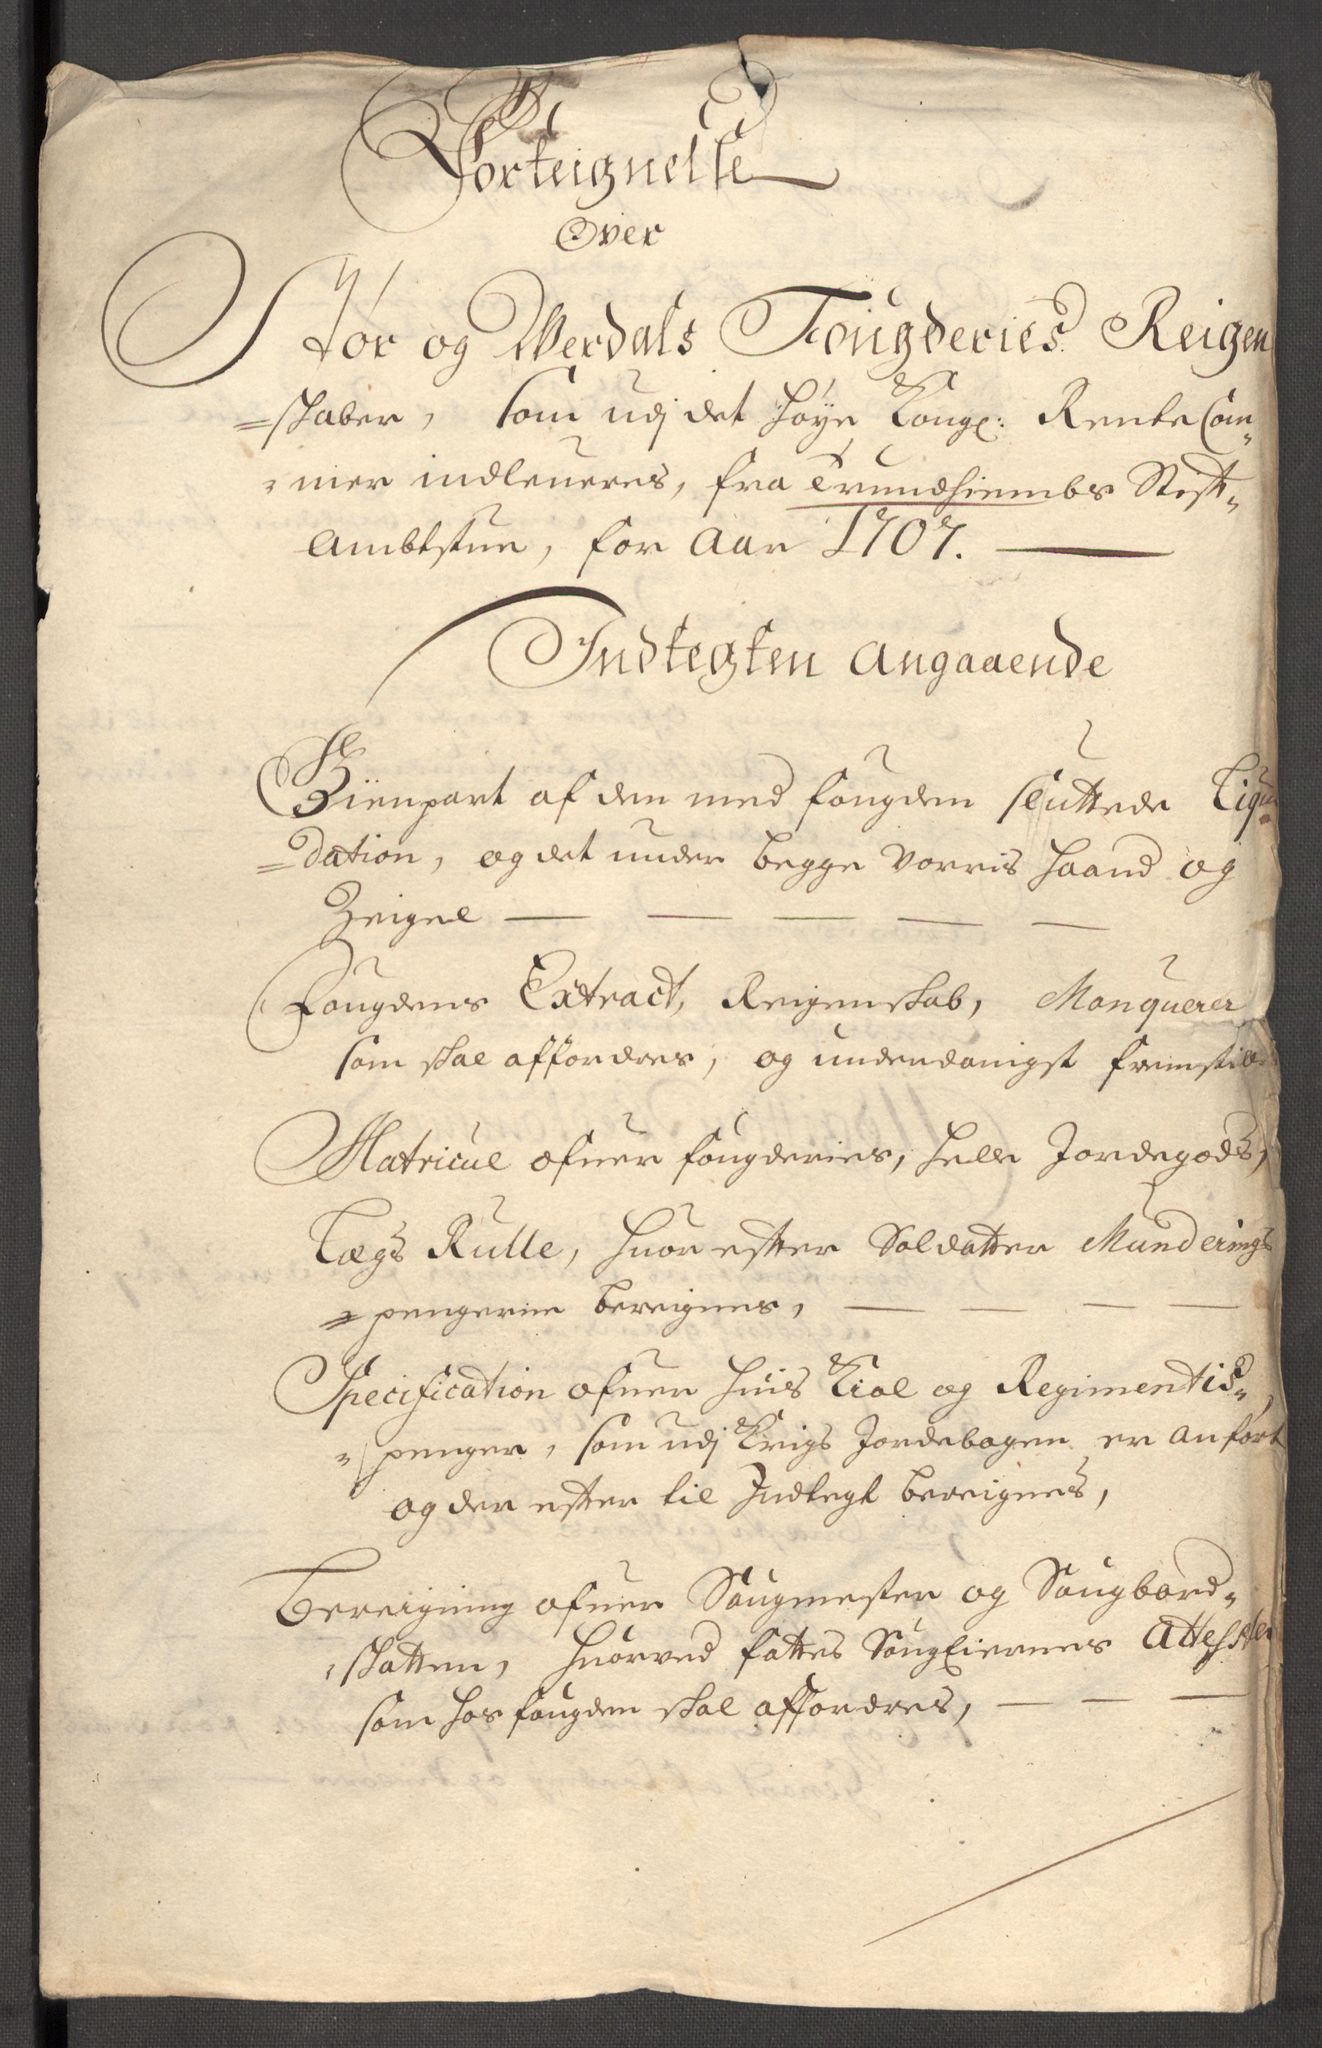 Forteignelse
Over
Stør og Werdals Fougderies Reigen
=skaber, som udj det høye Kongl: Rente Cam„
„mer indleueres, fra Trundhiembs Stift„
Ambtstue, for Aar 1707.
Indtegten angaaende
Gienpart af den med fougden sluttede Liqui„
=dation, og det under begge vorris haand og
Zeigel
Fougdens Extract, Reigenskab, Manquerer
som skal affordres, og underdanigst fremstilles
Matricul ofuer fougderies, helle Jordegods,
Lægs Rulle, huor efter Soldatter Munderings
=pengerne bereignes,
Specification ofuer huis Kiol og Regimentis„
„penger, som udj Krigs Jordebogen er anført
og der efter til Indtegt bereignes,
Bereigning ofuer Saugmester og Saugbord„
„skatten, huorved fattes Saugeiernes Attester
som hos fougden skal affordres,